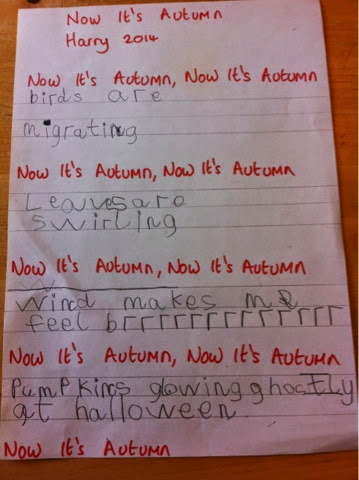 Now It's Autumn
Harry 2014
Now It's Autumn, Now It's Autumn
birds are
migrating
Now It's Autumn, Now It's Autumn
Leaves are
swirling
Now It's Autumn, Now It's Autumn
wind makes me
feel brrrrrrrrrrrrr
Now It's Autumn, Now It's Autumn
Pumpkins glowing ghostly
at halloween
Now It's Autumn